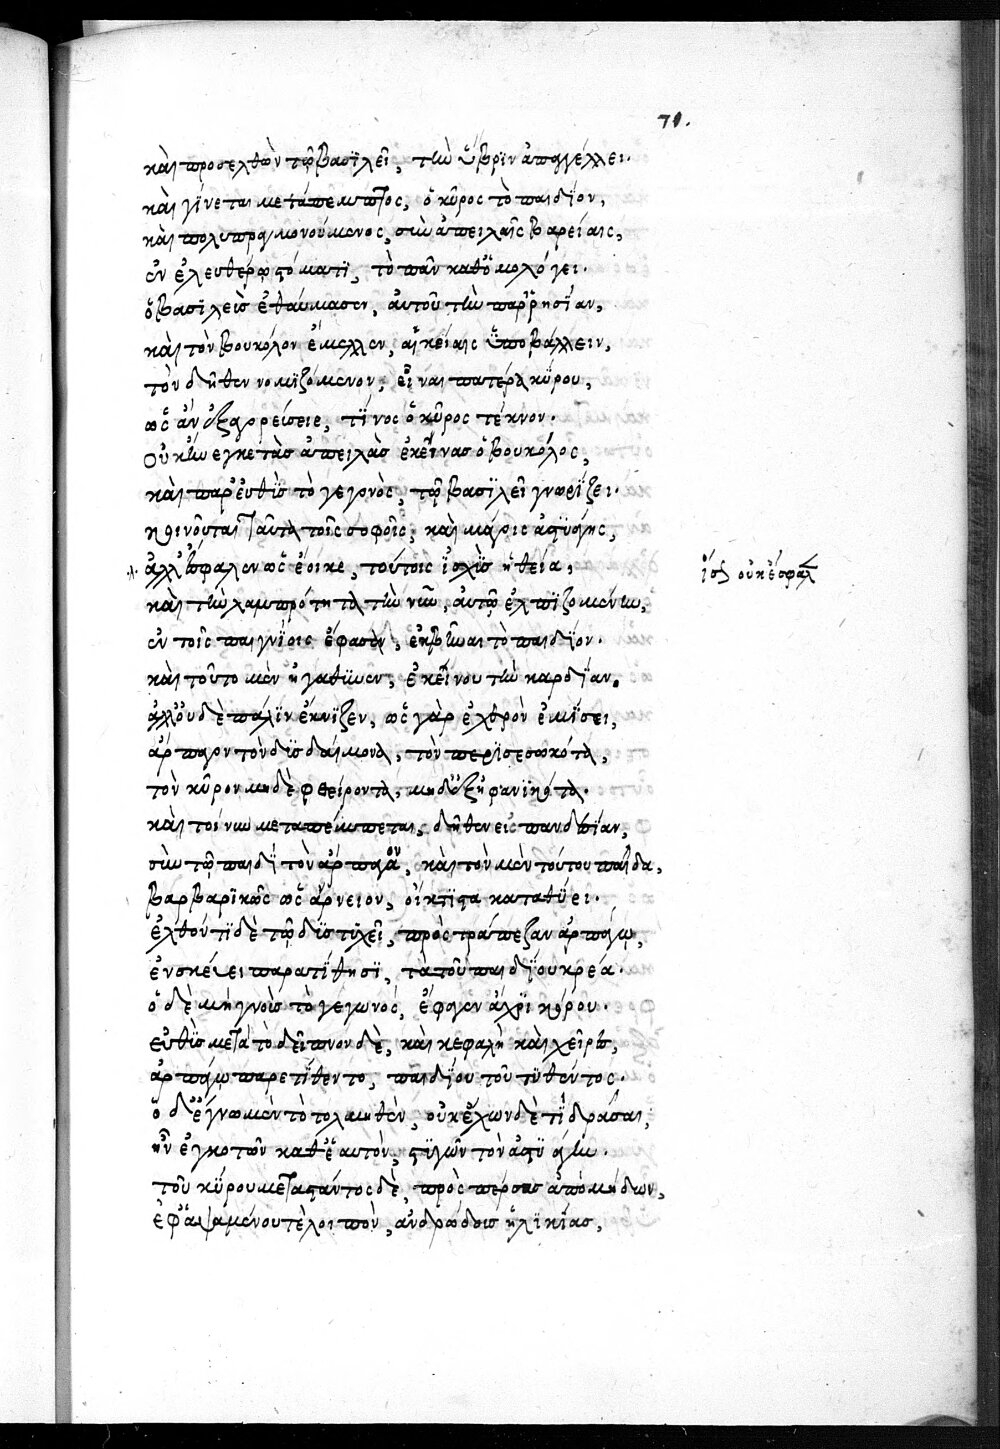 71.
καὶ προσελθὼν τῷ βασϊλεῖ, τὴν ὕβρϊν ἀπαγγέλλει.
καὶ γίνεται μετάπεμπτος, ὁ κῦρος τὸ παιδΐον,
καὶ πολυπραγμονούμενος, σὺν ἀπειλαῖς βαρείαις,
ἐν ἐλευθέρῳ στόματϊ, τὸ πᾶν καθὁμολόγει.
ὁ βασϊλεὺς ἐθαύμασεν, αὐτοῦ τὴν παρρησΐαν,
καὶ τὸν βουκόλον ἔμελλεν, αἰκείαις ὑποβάλλειν,
τὸν δῆθεν νομϊζόμενον, εἶναι πατέρα κύρου,
ὡς ἂν ἐξαγορεύσειε, τΐνος ὁ κῦρος τέκνον.
Οὐκ ἤνεγκε τὰς ἀπειλὰς ἐκείνας ὁ βουκόλος,
καὶ παρευθὺς τὸ γεγονὸς, τῷ βασϊλεῖ γνωρΐζει.
κοινοῦται ταῦτα τοῖς σοφοῖς, καὶ μάγοις ἀστυάγης,
ἀλλ' ἔσφαλεν ὡς ἔοικε, τούτοις ἰσχὺς ἡ θεία,
ἴσως οὐκ ἔσφαλ
καὶ τὴν λαμπρότητα τὴν νῦν, αὐτῷ ἐλπϊζομένην,
ἐν τοῖς παιγνΐοις ἔφασαν, ἐκβῆναι τὸ παιδΐον.
καὶ τοῦτο μὲν ἠγάθυνεν, ἐκείνου τὴν καρδΐαν.
ἀλλ' οὐδὲ πάλϊν ἔκνϊζεν, ὡς γὰρ ἐχθρὸν ἐμΐσει,
ἅρπαγον τὸν δϋσδαίμονα, τὸν περϊσεσωκότα,
τὸν κῦρον μηδὲ φθείροντα, μηδ' ἐξηφανϊκότα.
καὶ τοίνυν μεταπέμπεται, δῆθεν εἰς πανδαισΐαν,
σὺν τῷ παιδΐ τὸν ἅρπαγον, καὶ τὸν μὲν τούτου παῖδα,
βαρβαρϊκῶς ὡς ἄρνειον, οἴκτϊστα καταθύει.
ἐλθόντϊ δὲ τῷ δϋστυχεῖ, πρὸς τράπεζαν ἁρπάγῳ,
ἐν σκέυει παρατΐθησϊ, τὰ τοῦ παιδΐου κρέα.
ὁ δὲ μὴ γνοὺς τὸ γεγονὸς, ἔφαγεν ἄχρϊ κόρου.
εὐθὺς μετὰ τὸ δεῖπνον δὲ, καὶ κεφαλὴ καὶ χεῖρες,
ἁρπάγῳ παρετΐθεντο, παιδΐου τοῦ τϋθέντος.
ὁ δ' ἔγνω μὲν τὸ τολμηθὲν, οὐκ ἔχων δὲ τΐ δρᾶσαι,
ἦν ἐγκοτῶν καθ' ἑαυτὸν, στυγῶν τὸν ἀστϋάγην.
τοῦ κύρου μεταστάντος δὲ, πρὸς πέρσας ἀπὸ μήδων,
ἐφαψαμένου τὲ λοιπὸν, ἀνδρώδους ἡλϊκΐας,